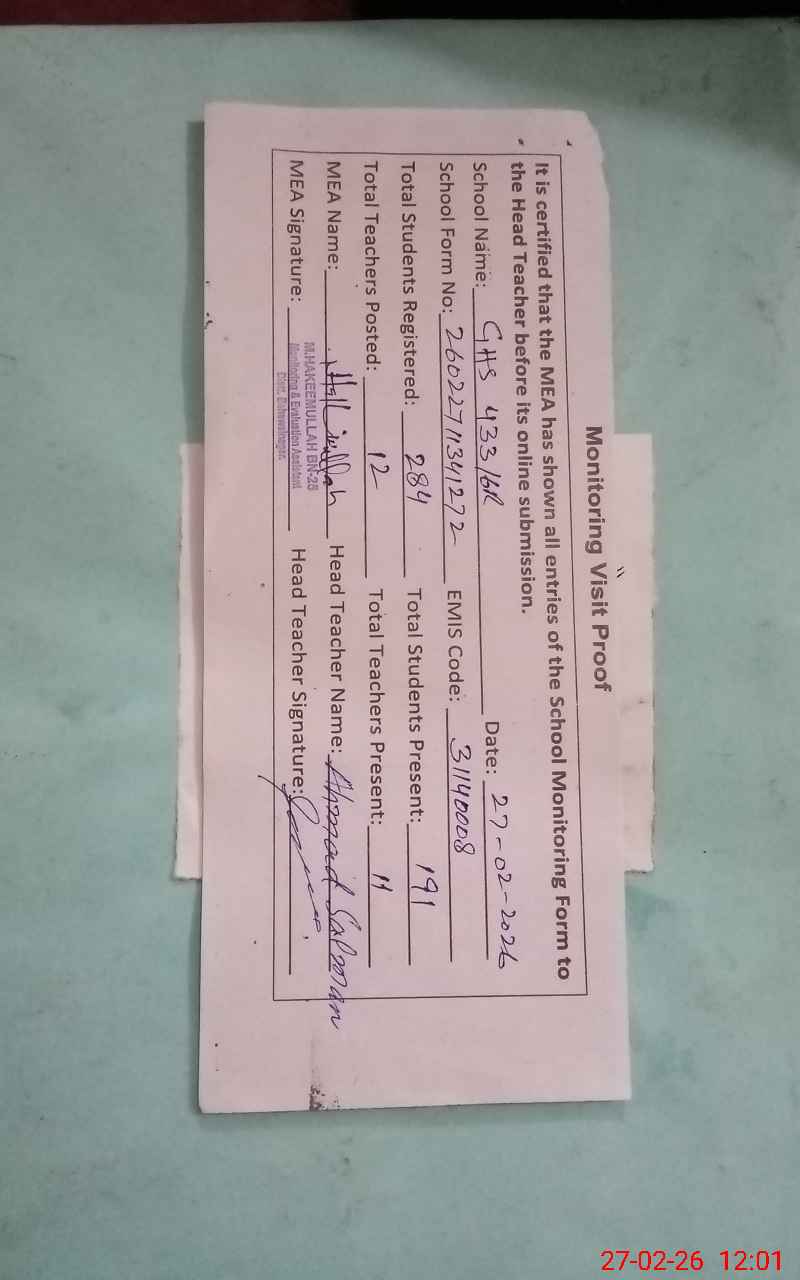 Monitoring Visit Proof
It is certified that the MEA has shown all entries of the School Monitoring Form to
the Head Teacher before its online submission.
School Name: GHS 433/6R Date: 27-02-2026
School Form No: 26022711341272 EMIS Code: 31140008
Total Students Registered: 284 Total Students Present: 191
Total Teachers Posted: 12 Total Teachers Present: 11
MEA Name: Head Teacher Name: Ahmad Salman
MEA Signature: Head Teacher Signature:
M.HAKEEMULLAH BN-25
Monitoring & Evaluation Assistant
Distt. Bahawalnagar.
27-02-26 12:01